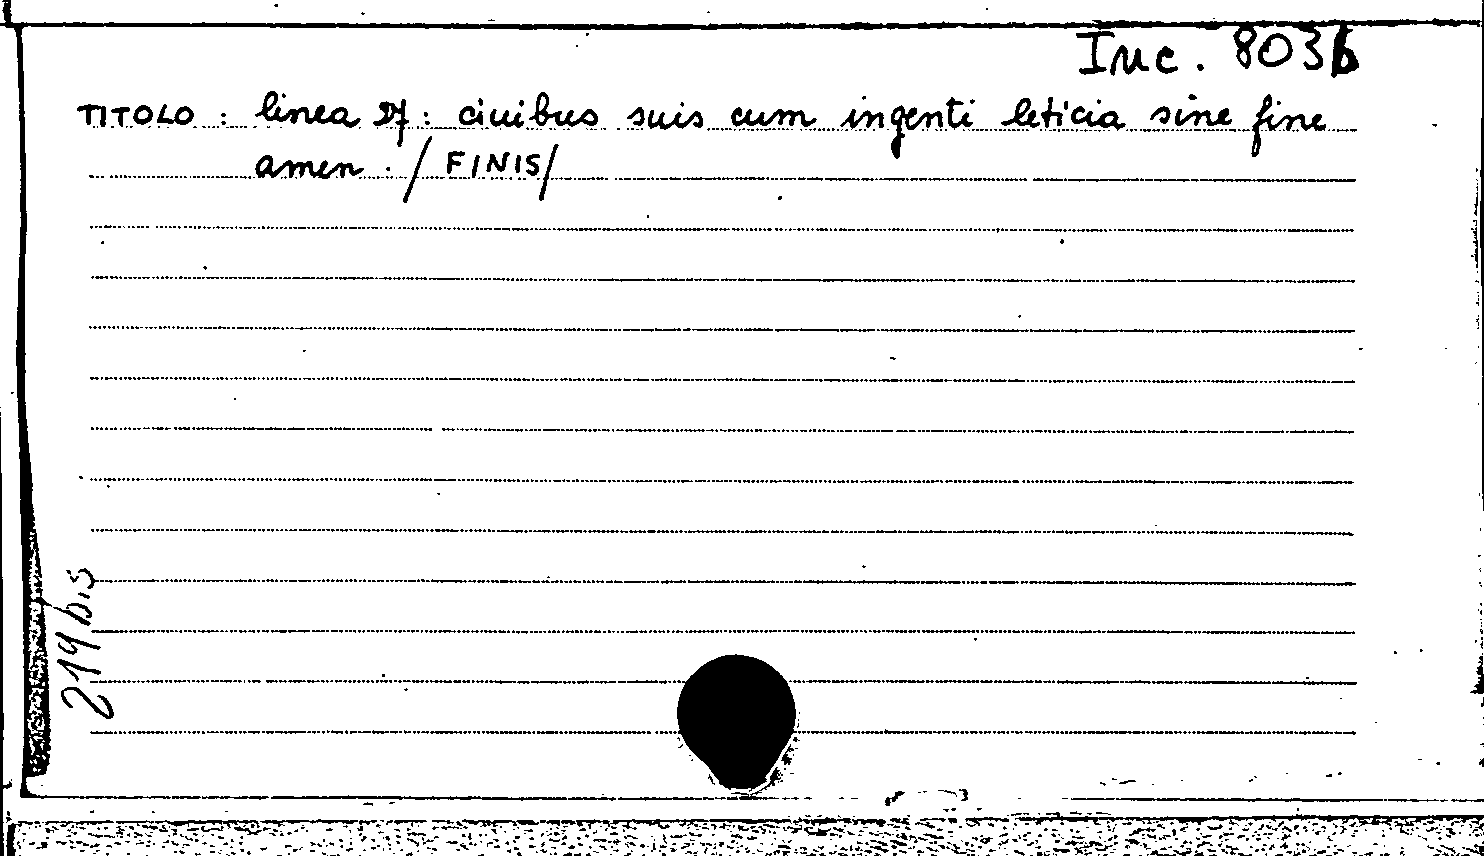 Inc. 803b
TITOLO : linea 27 : civibus suis cum ingenti leticia sine fine
amen . / FINIS /
219 bis